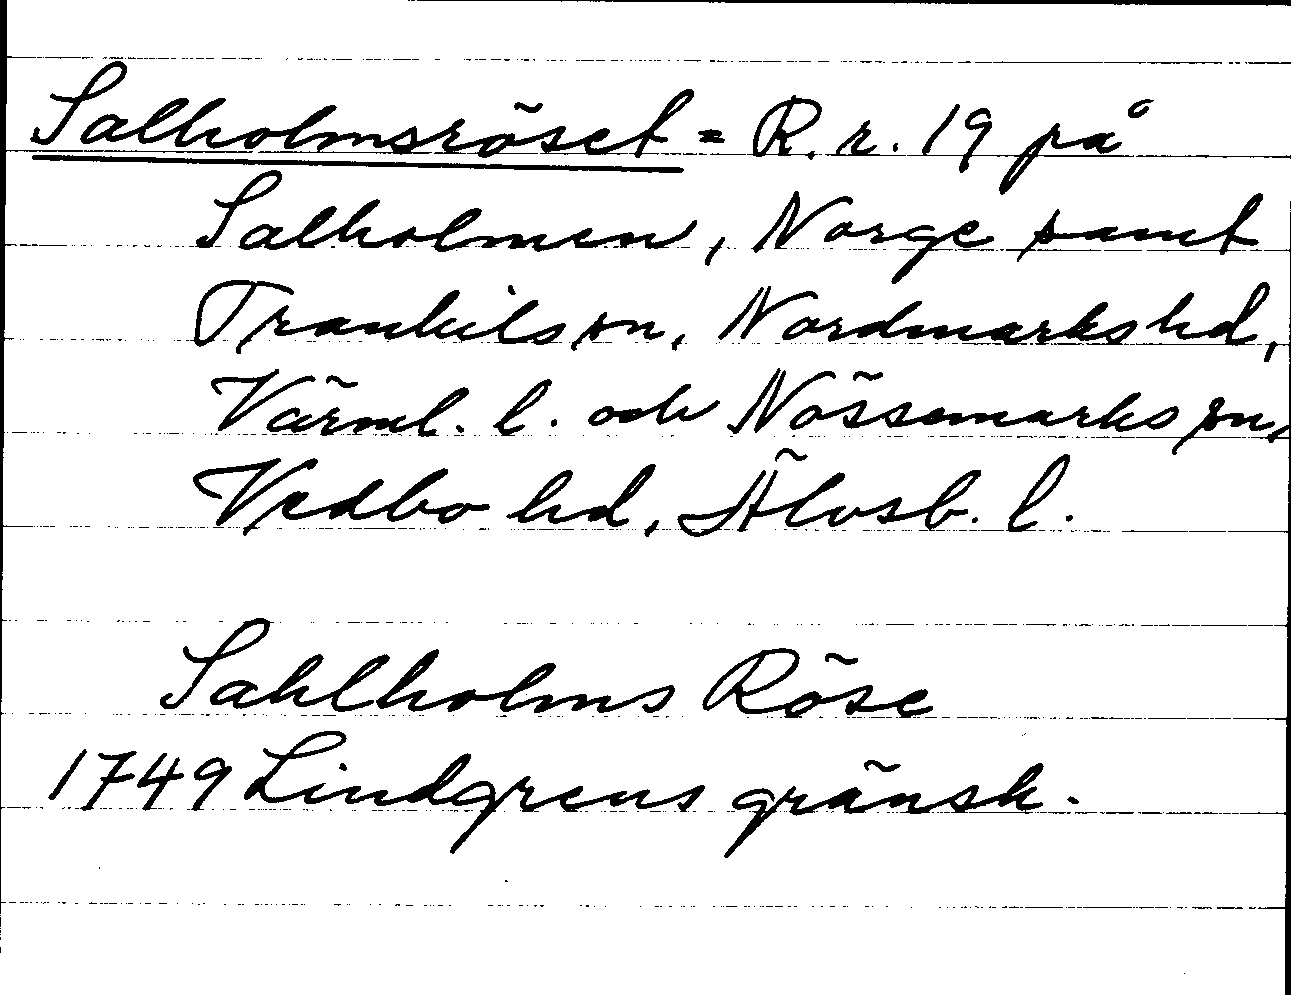 Salholmsröset = R. r. 19 på
Salholmen, Norge samt
Trankils sn, Nordmarks hd,
Värml. l. och Nössemarks sn,
Vedbo hd, Älvsb. l.
Sahlholms Röse
1749 Lindgrens gränsk.